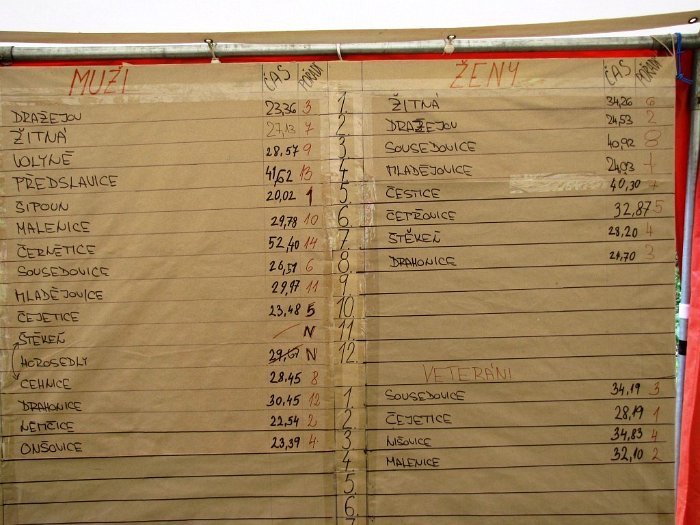 MUŽI ČAS POŘADÍ
DRAŽEJOV 23,36 3
ŽITNÁ 27,13 7
VOLYNĚ 28,57 9
PŘEDSLAVICE 41,62 13
ŠIPOUN 20,02 1
MALENICE 29,78 10
ČERNĚTICE 52,40 14
SOUSEDOVICE 26,51 6
MLADĚJOVICE 29,97 11
ČEJETICE 23,48 5
ŠTĚKEŇ N
HOROSEDLY 29,67 N
CEHNICE 28,45 8
DRAHONICE 30,45 12
NĚMČICE 22,54 2
ONŠOVICE 23,39 4
1.
2.
3.
4.
5.
6.
7.
8.
9.
10.
11.
12.
1.
2.
3.
4.
5.
6.
ŽENY ČAS POŘADÍ
ŽITNÁ 34,26 6
DRAŽEJOV 24,53 2
SOUSEDOVICE 40,92 8
MLADĚJOVICE 24,03 1
ČESTICE 40,30 7
ČETĚNOVICE 32,87 5
ŠTĚKEŇ 28,20 4
DRAHONICE 3
VETERÁNI
SOUSEDOVICE 34,19 3
ČEJETICE 28,19 1
NIŠOVICE 34,83 4
MALENICE 32,10 2